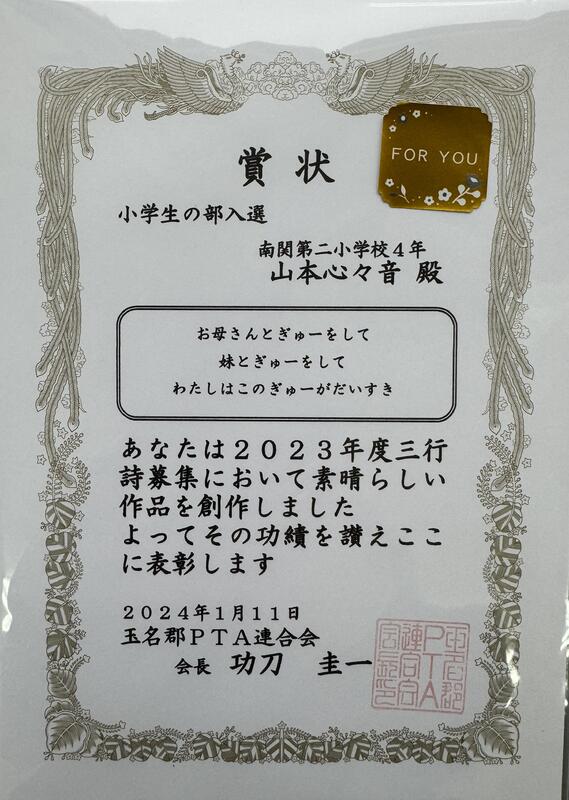 賞状
FOR YOU
小学生の部入選
南関第二小学校4年
山本心々音 殿
お母さんとぎゅーをして
妹とぎゅーをして
わたしはこのぎゅーがだいすき
あなたは2023年度三行
詩募集において素晴らしい
作品を創作しました
よってその功績を讃えここ
に表彰します
2024年1月11日
玉名郡PTA連合会
会長 功刀 圭一
玉名郡
PTA
連合会
会長印